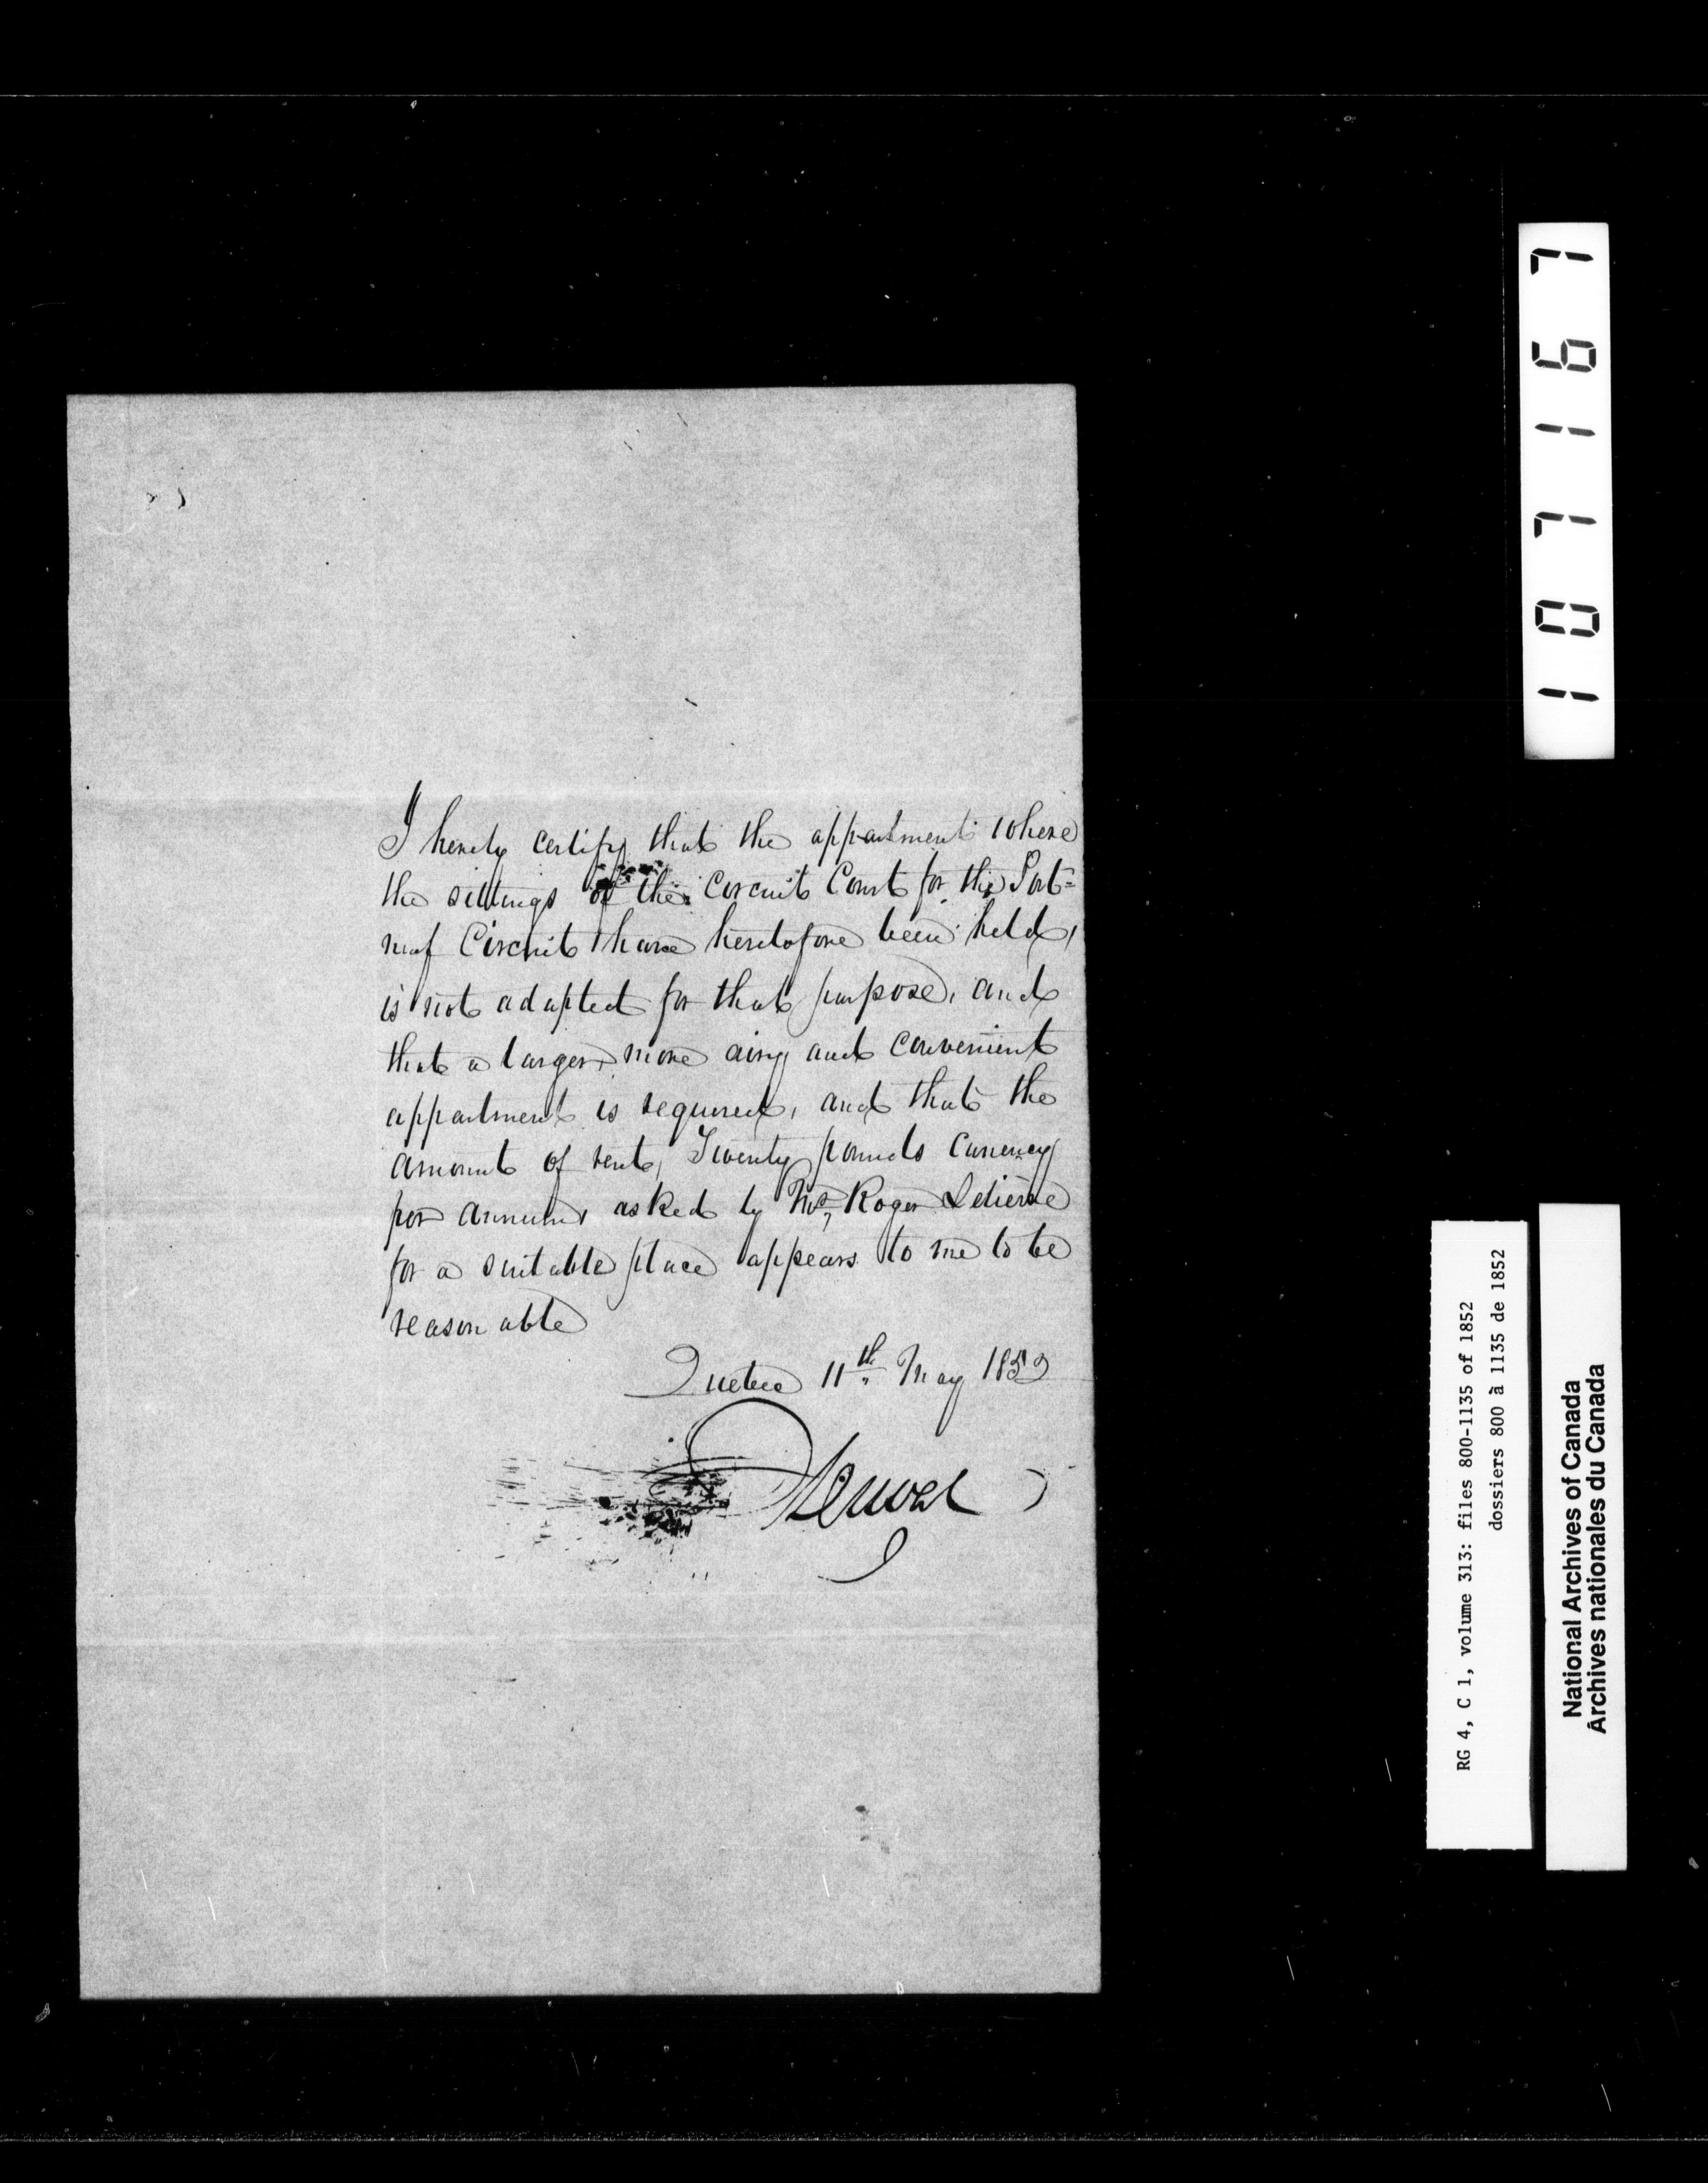 I hereby certify that the appartment where
the sittings of the Circuit Court for the Port=
neuf Circuit have heretofore been held,
is not adapted for that purpose, and
that a larger, more airy and convenient
appartment is required, and that the
amount of rent, Twenty pounds currency
per annum, asked by Mr. Roger Lelièvre
for a suitable place appears to me to be
reasonable
Quebec 11th May 1852
1071167
RG 4, C 1, volume 313: files 800-1135 of 1852
dossiers 800 à 1135 de 1852
National Archives of Canada
Archives nationales du Canada